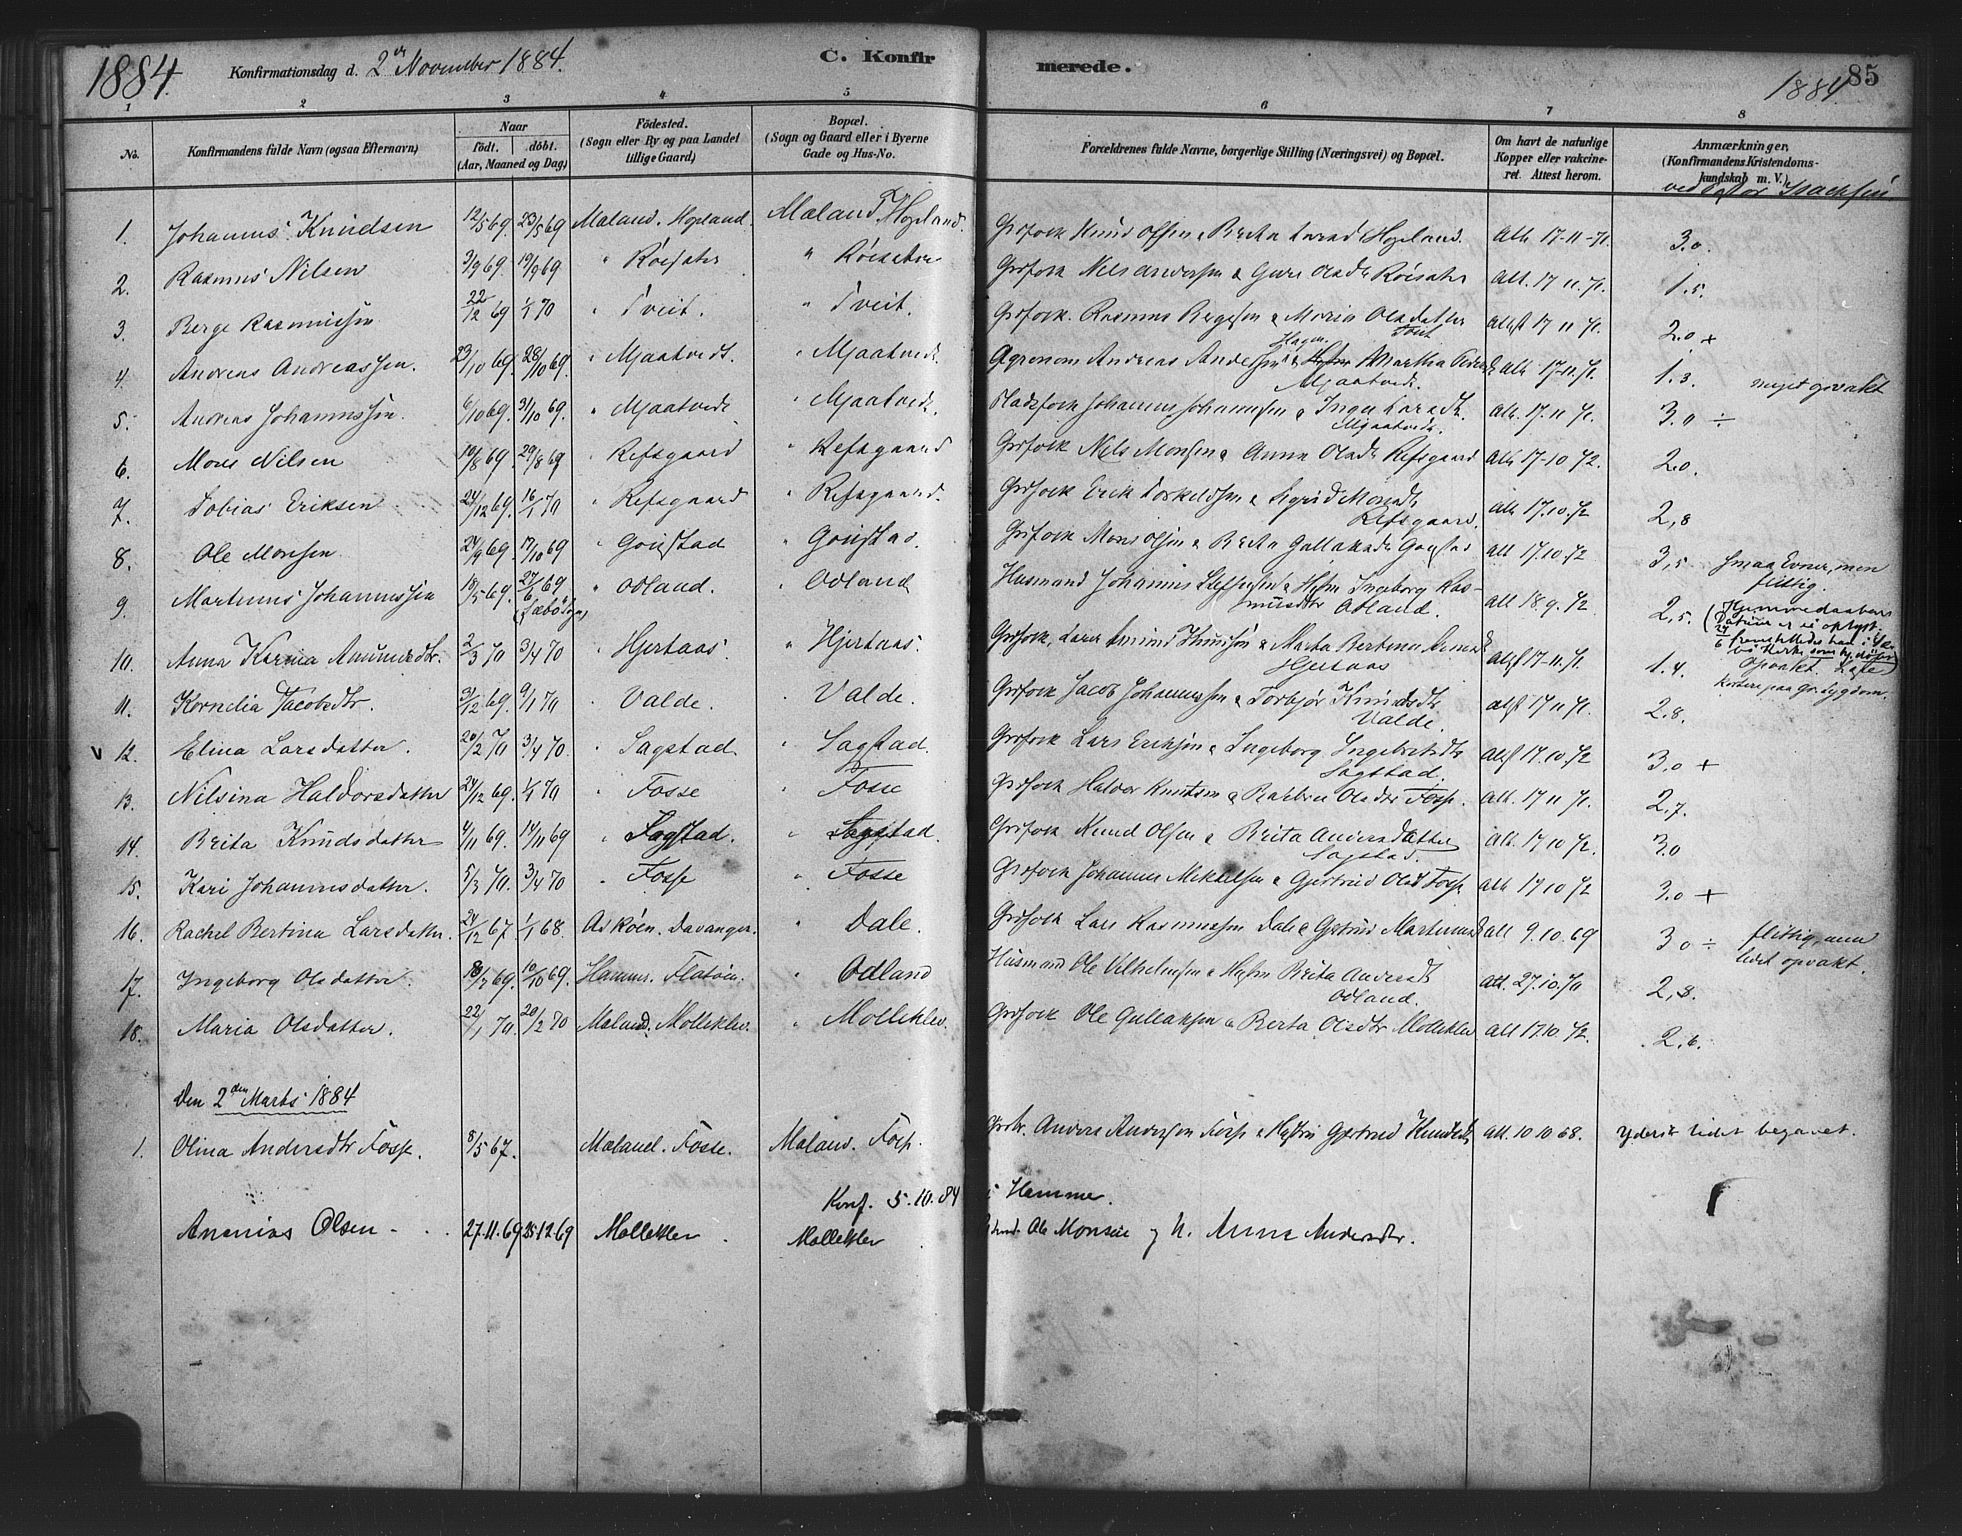 1884. Konfirmationsdag d. 2den November 1884. C. Konfirmerede. 1884. 85
1 2 3 4 5 6 7 8
No. Konfirmandens fulde Navn (ogsaa Efternavn) Naar födt. döbt. (Aar, Maaned og Dag) Födested. (Sogn eller By og paa Landet tillige Gaard) Bopæl. (Sogn og Gaard eller i Byerne Gade og Hus-No. Forældrenes fulde Navne, borgerlige Stilling (Næringsvei) og Bopæl. Om havt de naturlige Kopper eller vakcineret. Attest herom. Anmærkninger, (Konfirmandens Kristendomskundskab m. V.)
1. Johannes Knudsen 12/5 69. 23/5 69 Mæland. Hopland. Mæland Hopland. Grdfolk Knud Olsen & Brita Hopland. Att. 17-11-71. 3.0.
2. Rasmus Nilsen 3/9 69 19/9 69 " Röisæter " Röisæter Grdfolk Nels Andersen & Guri Olsdtr Röisæter Att. 17 11.71. 1.5.
3. Berge Rasmussen 22/12 69 1/1 70 " Tveit. " Tveit. Grdfolk. Rasmus Bergesen & Maria Olsdatter Tveit Attest 17 11 71. 2.0 +
4. Andreas Andreassen. 23/10 69. 28/10 69. " Mjaatvedt. " Mjaatvedt. Agronom Andreas Andersen & Martha Mjaatvedt. Att. 17-11.71. 1.3. meget opvakt
5. Andreas Johannessen. 6/10 69. 31/10 69. " Mjaatvedt " Mjaatvedt. Pladsfolk Johannes Johannessen & Inger Larsdtr. Mjaatvedt. Att. 17.11 71. 3.0 ÷
6. Mons Nilsen 10/8 69. 29/8 69 " Refsgaard " Refsgaard Grdfolk Nels Monsen & Anna Olsdtr Refsgaard Att. 17-10 72. 2.0.
7. Tobias Eriksen 24/12 69. 16/1 70 " Refsgaard " Refsgaard. Grdfolk Erik Torkeldsen & Sigrid Monsdtr Refsgaard. Att 17.10.72 2,8
8. Ole Monsen 24/9 69. 17/10 69 " Goustad " Goustad. Grdfolk Mons Olsen & Brita Gullaksdtr Goustad Att 17.10.72 3,5 smaa Evner, men flittig.
9. Martinus Johannessen 10/5 69. 27/6 69 (Sæbö Sogn) " Odland. " Odland Husmand Johannes & Ingeborg Rasmusdtr Odland. Att 18.9.72 2,5.
10. Anna Karina Amundsdtr. 2/3 70 3/4 70 " Hjertaas " Hjertaas. Grdfolk. Amund Knudsen & Marta Bertina Hjertaas Attest 17-11.71. 1.4. opvakt.
11. Kornelia Jacobsdtr. 3/12 69. 9/1 70 " Valde. " Valde. Grdfolk Jacob Johannessen & Torbjör Knudsdtr Valde. Attest 17 11 71. 2.8.
12. Elina Larsdatter. 20/2 70 3/4 70. " Sagstad " Sagstad. Grdfolk Lars Eriksen & Ingeborg Ingebretsdtr Sagstad. Attest 17.10.72 3.0 +
13. Nilsina Haldorsdatter 24/12 69. 1/1 70 " Fosse " Fosse Grdfolk Haldor Knutsen & Barbru Olsdtr Fosse. Att. 17 11 71. 2,7.
14. Brita Knudsdatter 4/11 69. 14/11 69 " Sagstad. " Sagstad. Grdfolk Knud Olsen & Brita Andersdatter Sagstad. Att. 17 10 72. 3.0
15. Kari Johannesdatter. 5/3 70. 3/4 70 " Fosse " Fosse Grdfolk Johannes Mikkelsen & Gjertrud Olsd Fosse Att 17 10 72 3.0 +
16. Rachel Bertina Larsdatter. 24/12 67 1/1 68. Asköen. Davanger. " Dale. Grdfolk Lars Rasmussen Dale & Gjertrud Att 9.10.69 3 0 ÷ flittig, men lidet opvakt.
17. Ingeborg Olsdatter. 18/7 69. 10/10 69. Hammer. Flatöen " Odland Husmand Ole Vilhelmsen & Brita Andersdtr Odland. Att. 27.10.70 2,8.
18. Maria Olsdatter. 22/1 70. 20/2 70 Mæland. Molleklev " Molleklev. Grdfolk Ole Gullaksen & Berta Olsdtr Molleklev Att 17.10.72. 2.6.
Den 2den Marts 1884
1. Olina Andersdtr Fosse. 8/5 67. Mæland. Fosse. Mæland. Fosse. Anders Andersen Fosse & Gjertrud Knudsdtr Att. 10 10 68. yderst lidet begavet.
Konf. 5.10.84 i Hammer.
Ananias Olsen 27.11.69 12.69 Molleklev Molleklev Ole Monsen og H. Anna Andersdtr.